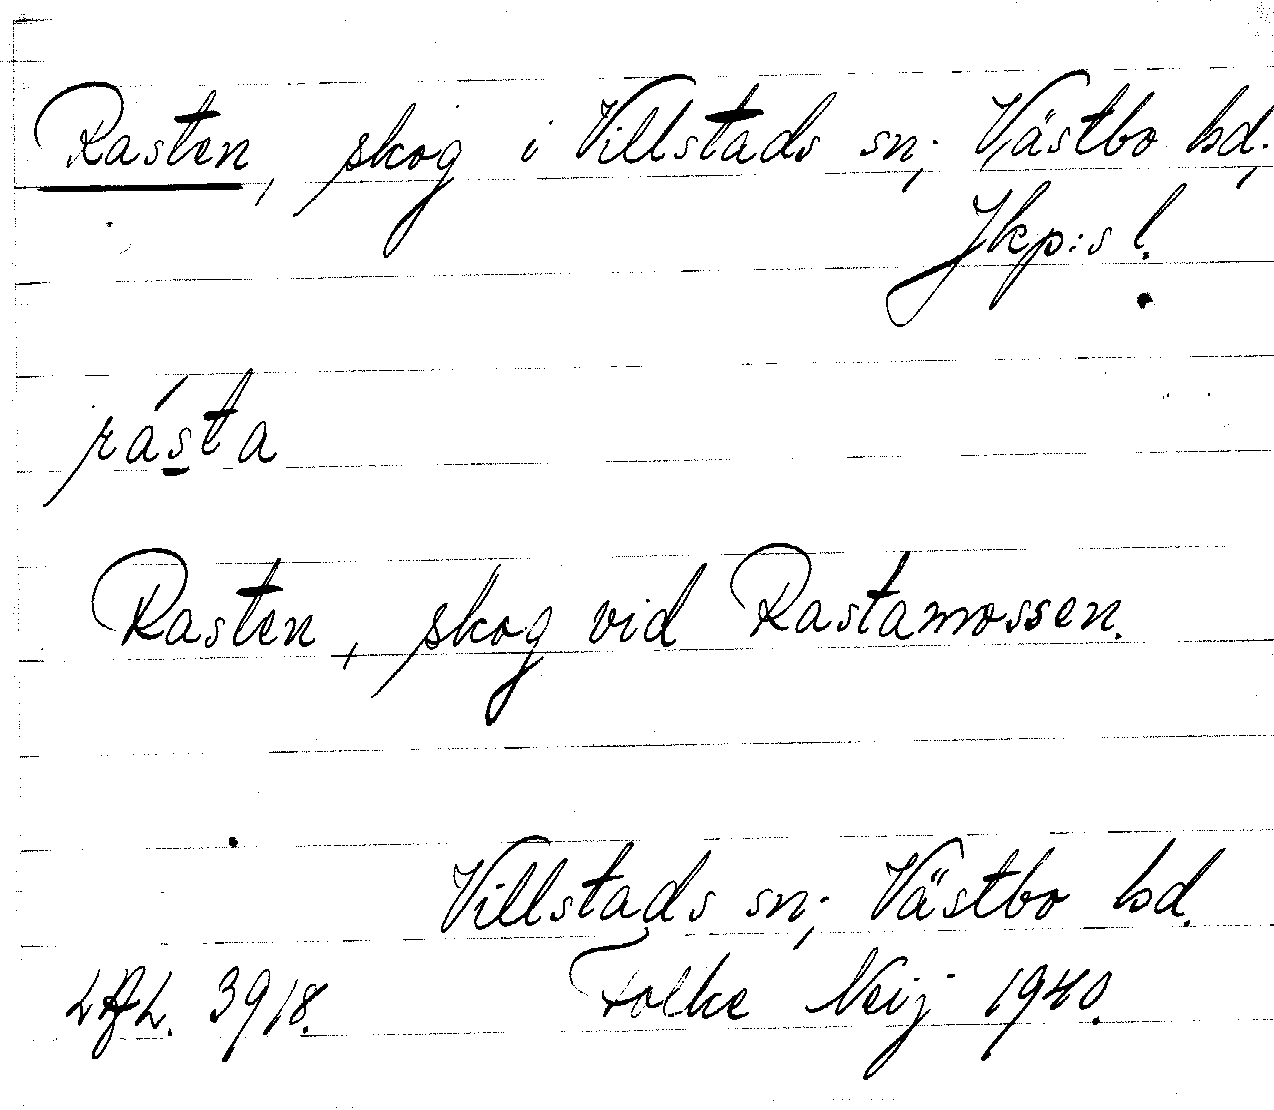 Rasten, skog i Villstads sn; Västbo hd.,
Jkp:s l.
rásta
Rasten, skog vid Rastamossen.
Villstads sn; Västbo hd.
3918. Folke Neij 1940.